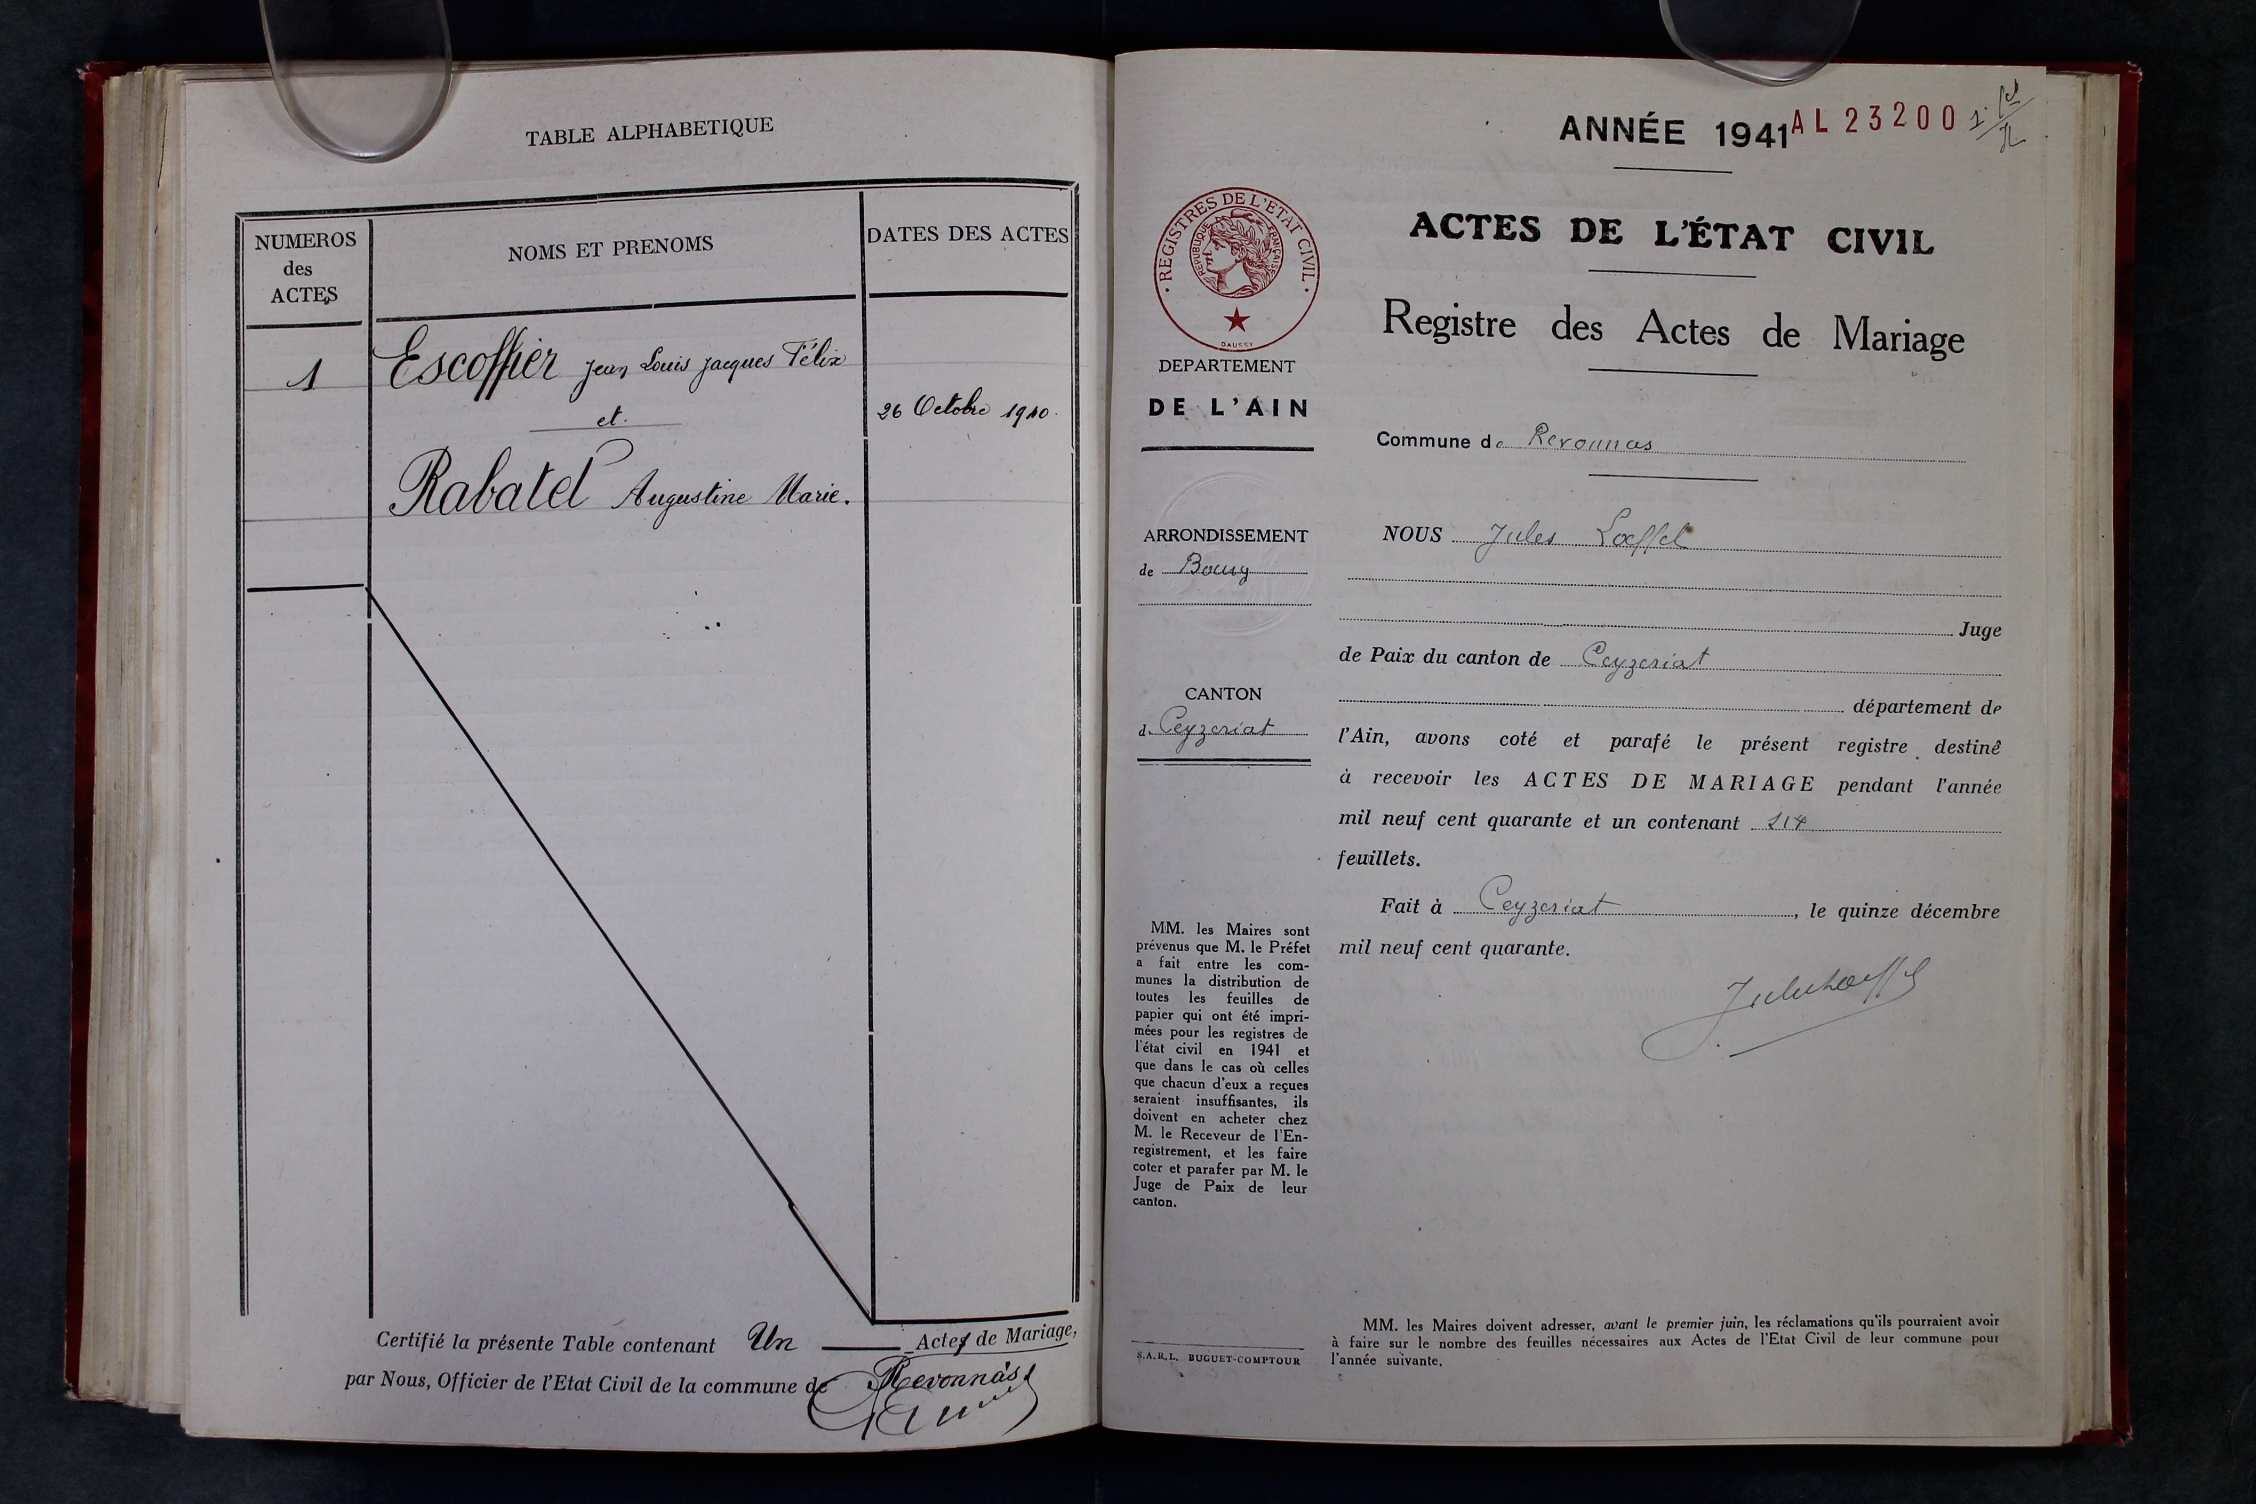 TABLE ALPHABETIQUE
NUMEROS
des
ACTES
NOMS ET PRENOMS
DATES DES ACTES
1
Escoffier Jean Louis Jacques Félix
et
26 Octobre 1940.
Rabatel Augustine Marie.
Certifié la présente Table contenant Un Actes de Mariage,
par Nous, Officier de l'Etat Civil de la commune de Revonnas
ANNÉE 1941
AL 23200
REGISTRES DE L'ETAT CIVIL
REPUBLIQUE FRANÇAISE
DAUSSY
DEPARTEMENT
DE L'AIN
ARRONDISSEMENT
de Bourg
CANTON
de Ceyzeriat
MM. les Maires sont
prévenus que M. le Préfet
a fait entre les com-
munes la distribution de
toutes les feuilles de
papier qui ont été impri-
mées pour les registres de
l'état civil en 1941 et
que dans le cas où celles
que chacun d'eux a reçues
seraient insuffisantes, ils
doivent en acheter chez
M. le Receveur de l'En-
registrement, et les faire
coter et parafer par M. le
Juge de Paix de leur
canton.
S.A.R.L. BUGUET-COMPTOUR
ACTES DE L'ÉTAT CIVIL
Registre des Actes de Mariage
Commune de Revonnas
NOUS Jules Loeffel
Juge
de Paix du canton de Ceyzeriat
département de
l'Ain, avons coté et parafé le présent registre destiné
à recevoir les ACTES DE MARIAGE pendant l'année
mil neuf cent quarante et un contenant
feuillets.
Fait à Ceyzeriat, le quinze décembre
mil neuf cent quarante.
MM. les Maires doivent adresser, avant le premier juin, les réclamations qu'ils pourraient avoir
à faire sur le nombre des feuilles nécessaires aux Actes de l'Etat Civil de leur commune pour
l'année suivante.